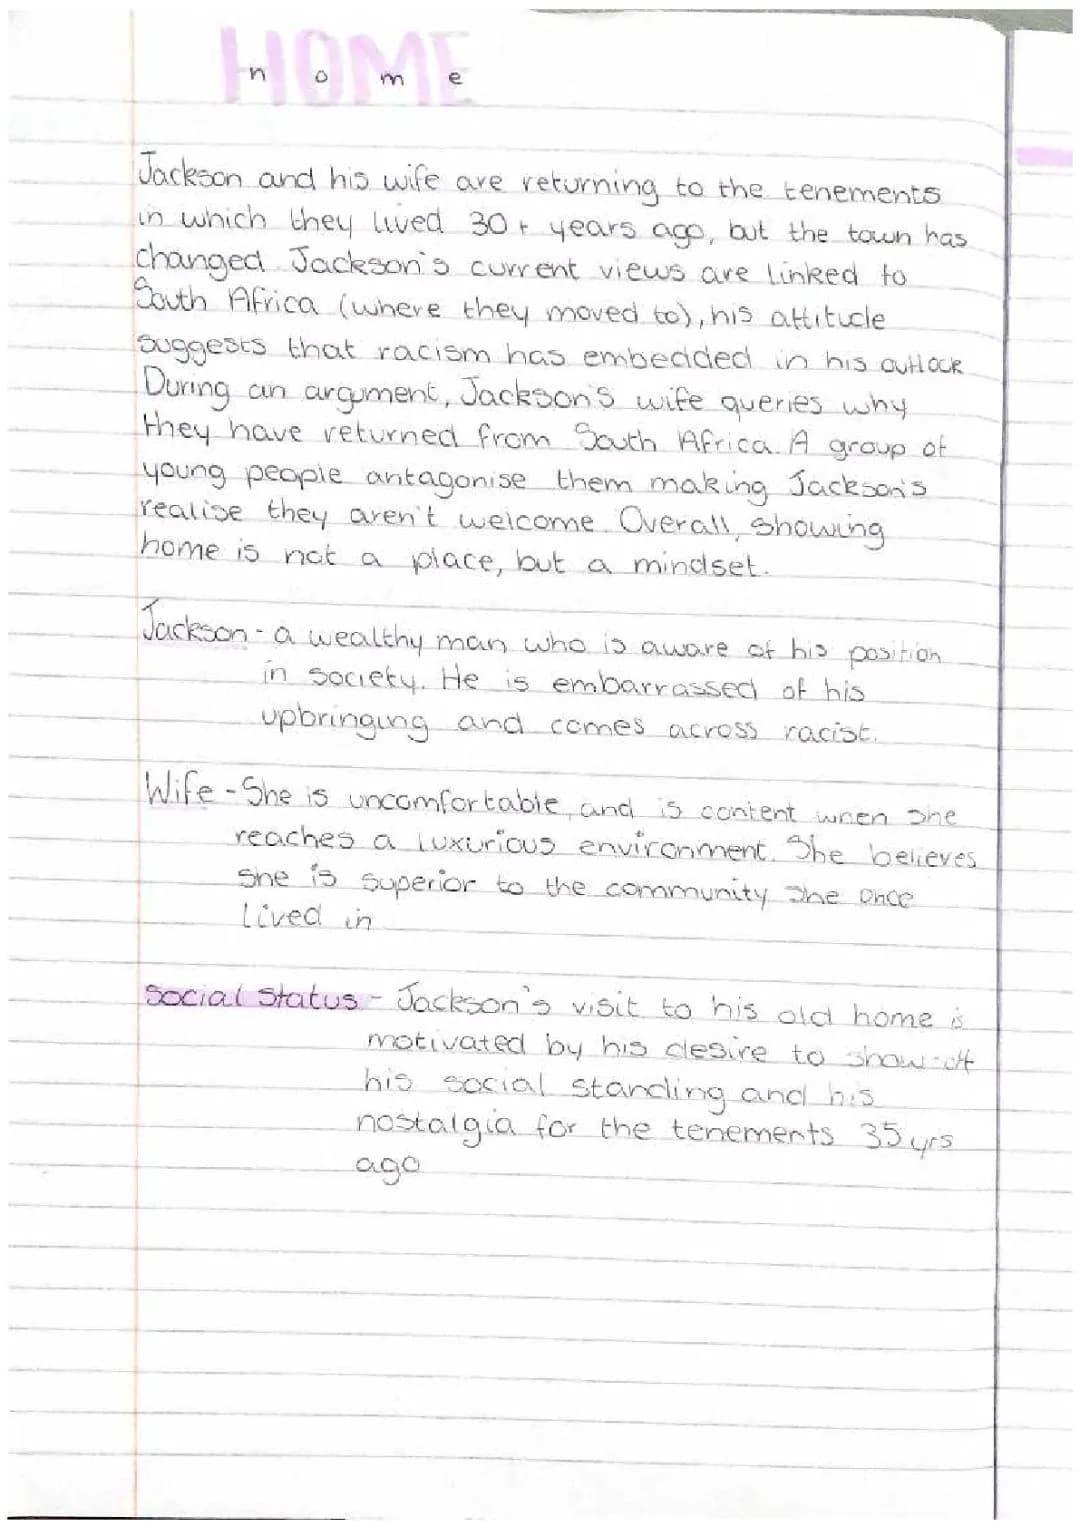 HOME
home
Jackson and his wife are returning to the tenements
in which they lived 30+ years ago, but the town has
changed. Jackson's current views are linked to
South Africa (where they moved to), his attitude
suggests that racism has embedded in his outlook
During an argument, Jackson's wife queries why
they have returned from South Africa. A group of
young people antagonise them making Jackson's
realise they aren't welcome. Overall, showing
home is not a place, but a mindset.
Jackson - a wealthy man who is aware of his position
in society. He is embarrassed of his
upbringing and comes across racist.
Wife - She is uncomfortable, and is content when she
reaches a luxurious environment. She believes
she is superior to the community she once
lived in
Social Status - Jackson's visit to his old home is
motivated by his desire to show-off
his social standing and his
nostalgia for the tenements 35 yrs
ago